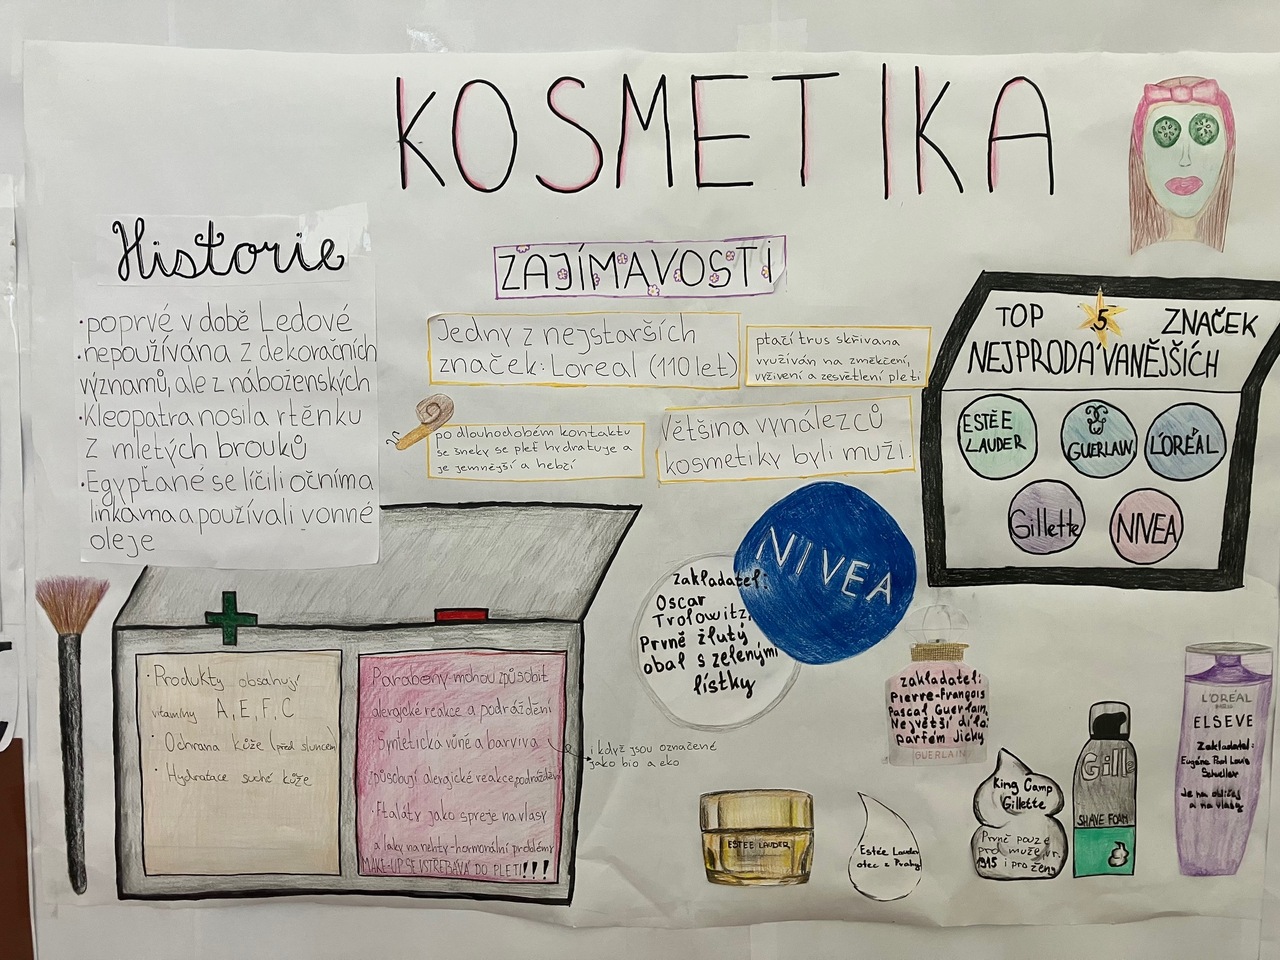 KOSMETIKA
Historie
·poprvé v době Ledové
·nepoužívána z dekoračních
významů, ale z náboženských
·Kleopatra nosila rtěnku
z mletých brouků
·Egypťané se líčili očníma
linkama a používali vonné
oleje
ZAJÍMAVOSTI
Jedny z nejstarších
značek: Loreal (110 let)
ptačí trus skřivana
využíván na změkčení,
vyživení a zesvětlení pleti
po dlouhodobém kontaktu
se šneky se pleť hydratuje a
je jemnější a hebčí
Většina vynálezců
kosmetiky byli muži.
TOP 5 ZNAČEK
NEJPRODÁVANĚJŠÍCH
ESTĚE
LAUDER
GUERLAIN
L'ORÉAL
Gillette
NIVEA
·Produkty obsahují
vitamíny A, E, F, C
·Ochrana kůže (před sluncem)
·Hydratace suché kůže
Parabeny mohou způsobit
alergické reakce a podráždění
·Syntetická vůně a barviva
způsobují alergické reakce, podráždění
·Ftaláty jako spreje na vlasy
a laky na nehty-hormonální problémy
MAKE-UP SE VSTŘEBÁVÁ DO PLETI!!!
i když jsou označené
jako bio a eko
NIVEA
zakladatel:
Oscar
Trolowitz,
Prvně žlutý
obal s zelenými
lístky
zakladatel:
Pierre-François
Pascal Guerlain,
Největší díla:
parfém Jicky
GUERLAIN
ESTĒE LAUDER
Estée Lauder
otec z Prahy
King Camp
Gillette
Prvně pouze
pro muže, vr.
1915 i pro ženy
Gill
SHAVE FOAM
L'ORÉAL
ELSEVE
Zakladatel:
Eugéne Paul Louis
Schueller
Je na obličej
a na vlasy